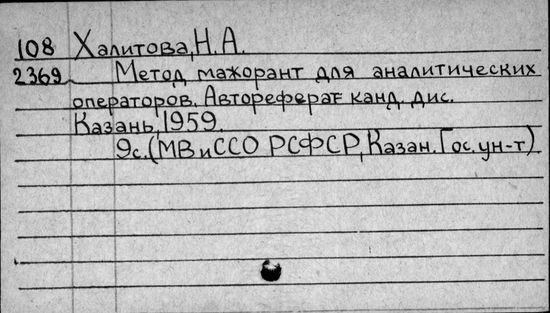 108 Халитова, Н. А.
2369 Метод мажорант для аналитических
операторов. Автореферат канд. дис.
Казань, 1959.
9с. (МВ и ССО РСФСР, Казан. Гос. ун-т)